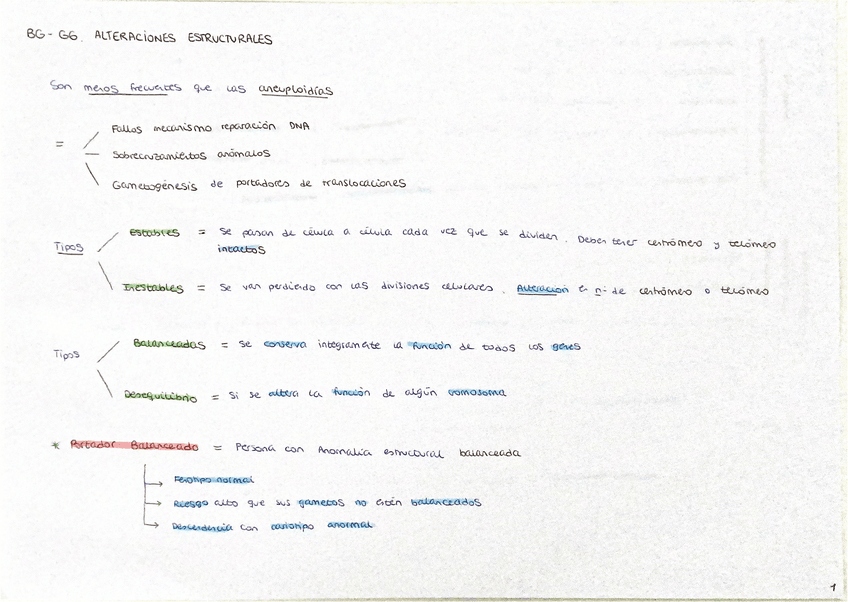 BG-G6. ALTERACIONES ESTRUCTURALES
Son menos frecuentes que las aneuploidías
= Fallos mecanismo reparación DNA
Sobrecruzamientos anómalos
Gametogénesis de portadores de translocaciones
Tipos
Estables = Se pasan de célula a célula cada vez que se dividen. Deben tener centrómero y telómero
intactos
Inestables = Se van perdiendo con las divisiones celulares. Alteración en nº de centrómero o telómero
Tipos
Balanceados = Se conserva íntegramente la función de todos los genes
Desequilibrio = Si se altera la función de algún cromosoma
* Portador Balanceado = Persona con Anomalía estructural balanceada
→ Fenotipo normal
→ Riesgo alto que sus gametos no estén balanceados
→ Descendencia con cariotipo anormal
1